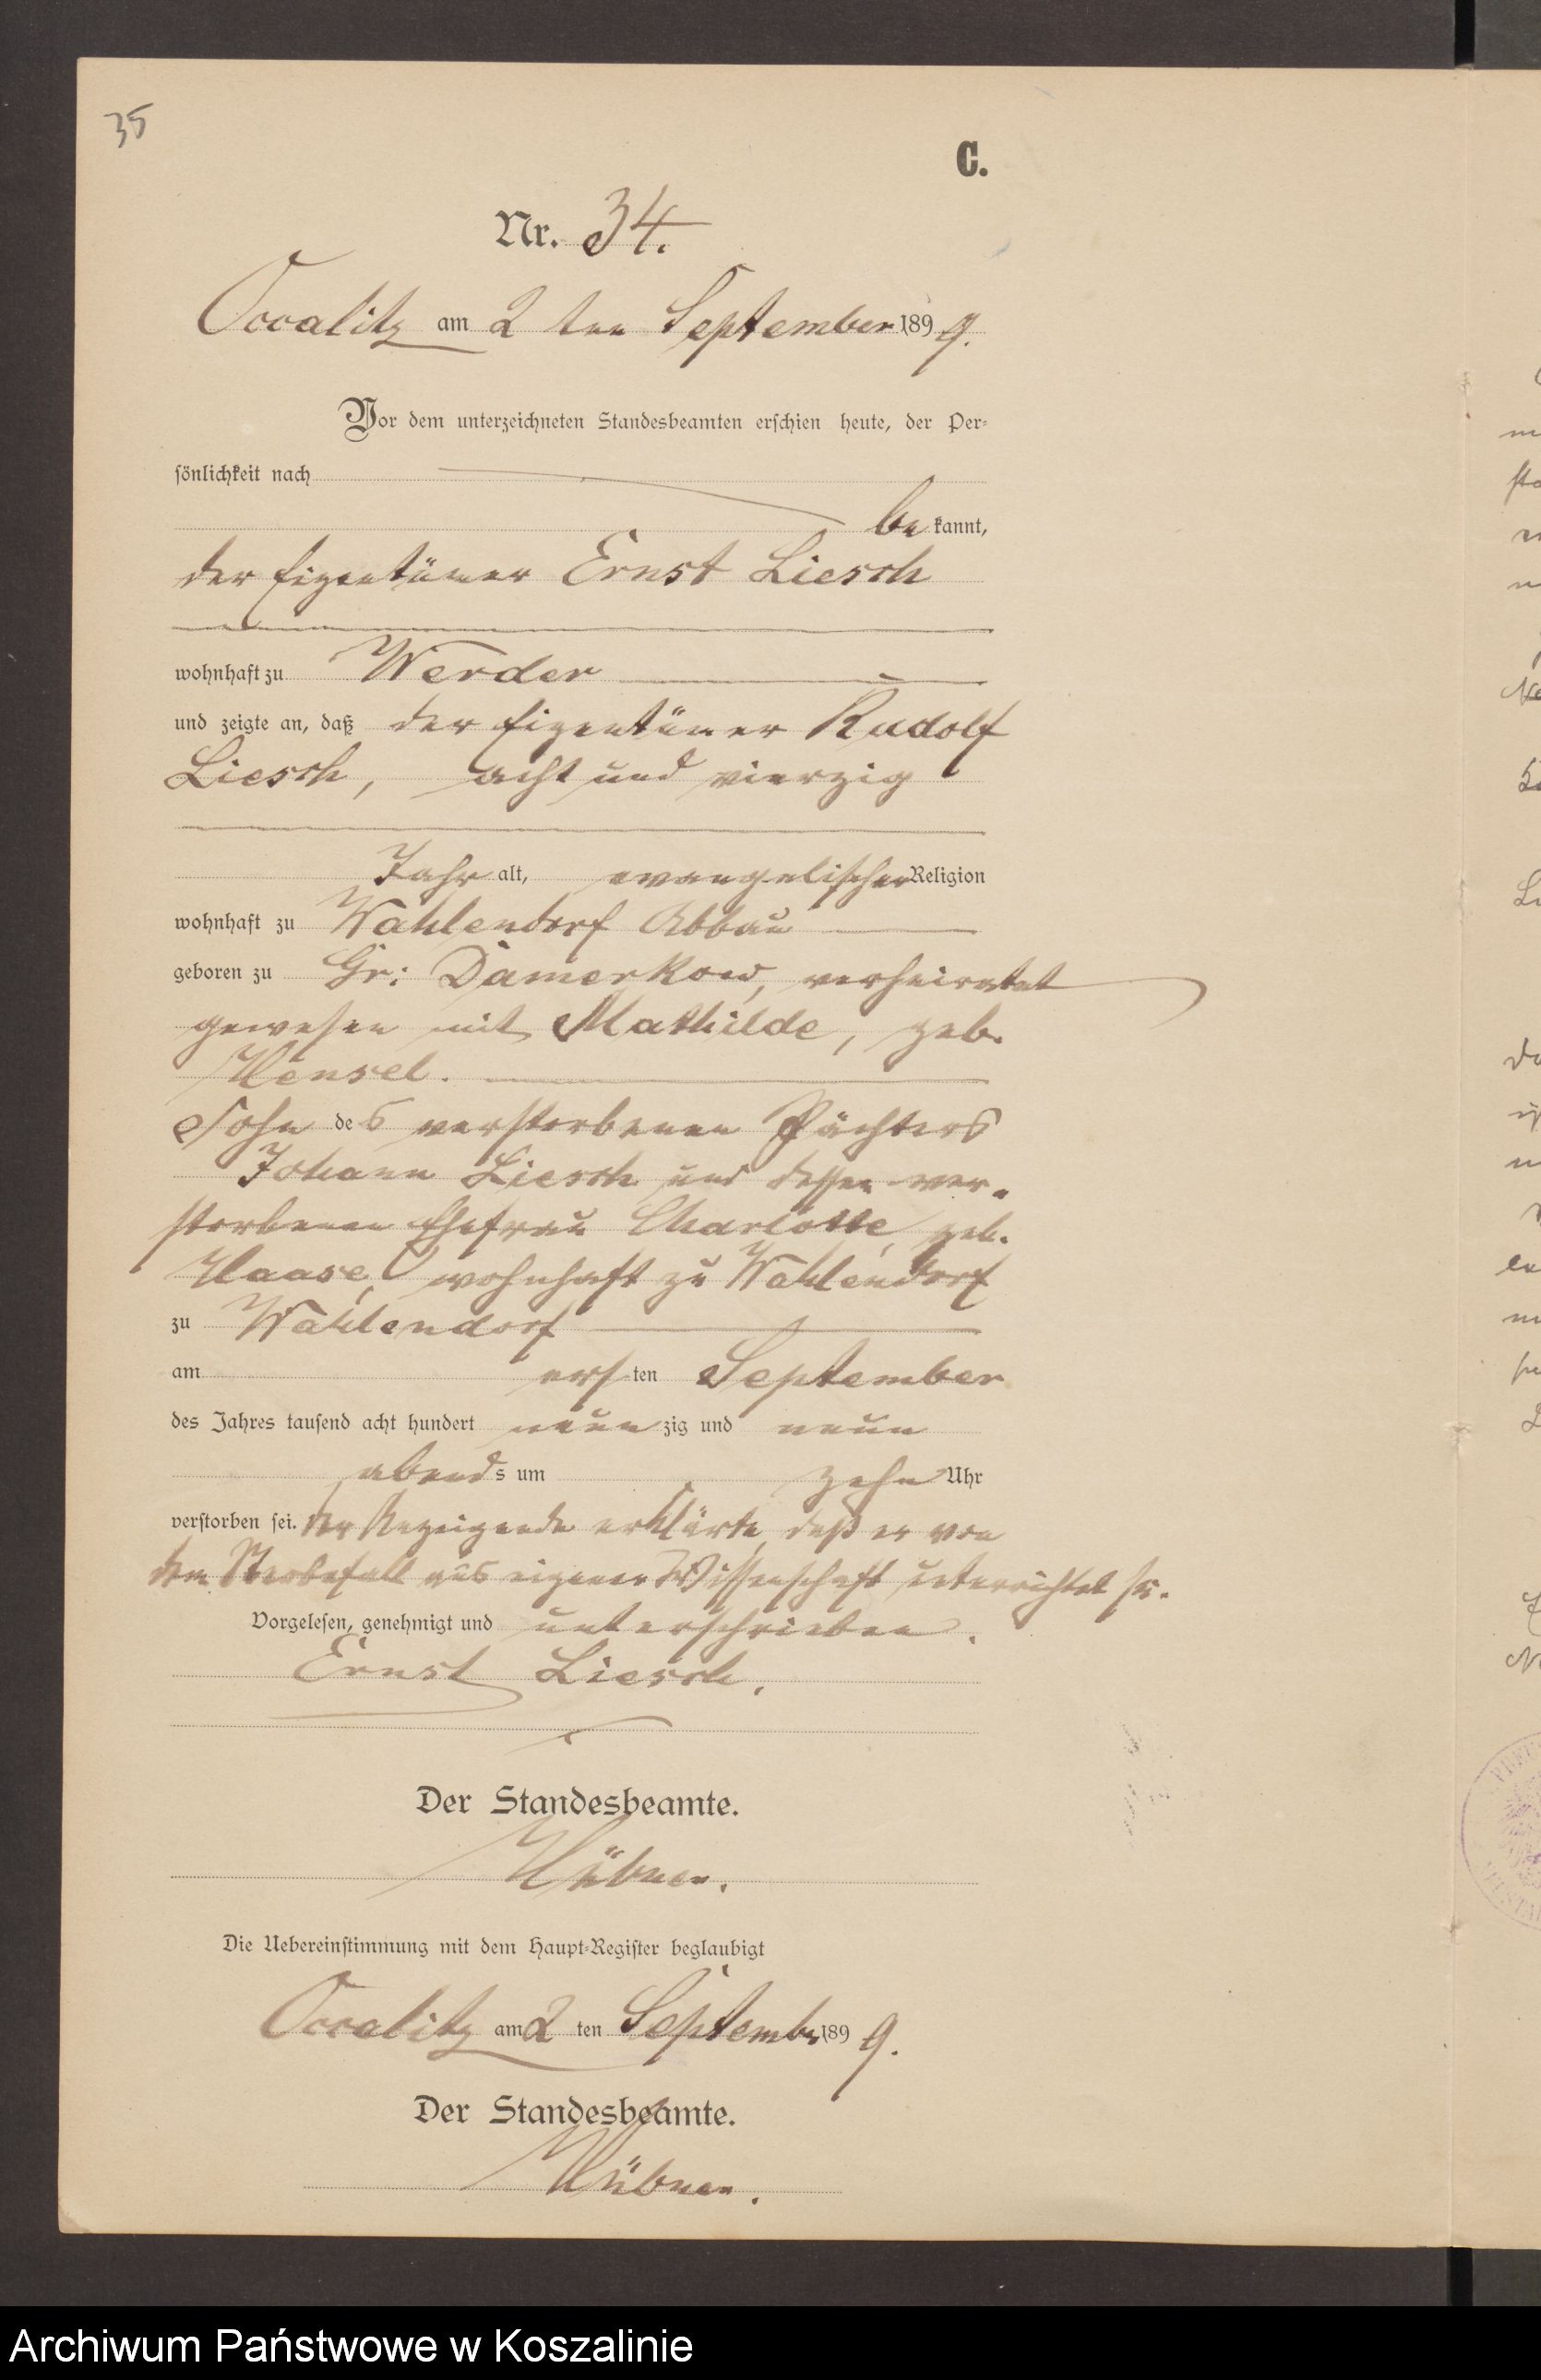 35
C.
Nr. 34.
Occalitz am 2 ten September 1899.
Vor dem unterzeichneten Standesbeamten erschien heute, der Per-
sönlichkeit nach
bekannt,
der Eigentümer Ernst Liesch
wohnhaft zu Werder
und zeigte an, daß der Eigentümer Rudolf
Liesch, acht und vierzig
Jahr alt, evangelischer Religion
wohnhaft zu Wahlendorf Abbau
geboren zu Gr: Damerkow, verheiratet
gewesen mit Mathilde, geb.
Hensel.
Sohn des verstorbenen Pächters
Johann Liesch und dessen ver-
storbenen Ehefrau Charlotte, geb.
Haase, wohnhaft zu Wahlendorf
zu Wahlendorf
am ersten September
des Jahres tausend acht hundert neunzig und neun
abends um zehn Uhr
verstorben sei. Der Anzeigende erklärte, daß er von
dem Sterbefall aus eigener Wissenschaft unterrichtet sei.
Vorgelesen, genehmigt und unterschrieben.
Ernst Liesch.
Der Standesbeamte.
Hübner.
Die Uebereinstimmung mit dem Haupt-Register beglaubigt
Occalitz am 2 ten Septembr 1899.
Der Standesbeamte.
Hübner.
Archiwum Państwowe w Koszalinie